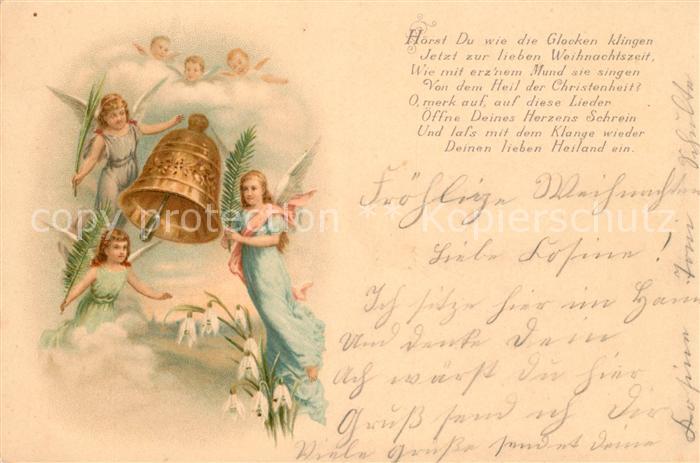 Hörst Du wie die Glocken klingen
Jetzt zur lieben Weihnachtszeit,
Wie mit erz'nem Mund sie singen
Von dem Heil der Christenheit?
O, merk auf, auf diese Lieder
Öffne Deines Herzens Schrein
Und laſs mit dem Klange wieder
Deinen lieben Heiland ein.
copyright protection ** Kopierschutz
Fröhlige Weihnachten
Liebe Kosine!
Ich sitze hier im
Und denke Dein
Ach wärst Du hier
Gruß send ich Dir
Viele Grüße sendet deine
Kosine Schulte